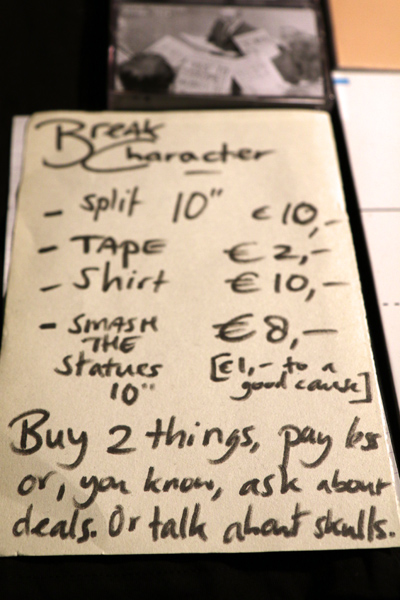 Break
Character
- split 10" € 10,-
- TAPE € 2,-
- Shirt € 10,-
- SMASH € 8,-
THE
Statues [€1,- to a
10" good cause]
Buy 2 things, pay less
or, you know, ask about
deals. Or talk about skulls.